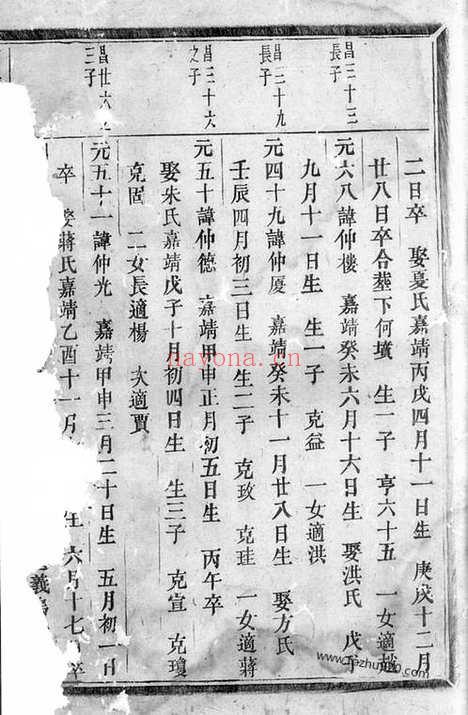 二日卒　娶夏氏嘉靖丙戌四月十一日生　庚戌十二月
廿八日卒合葬下何墳　生一子　亨六十五　一女適趙
昌二十三
長子
元六八諱仲樓　嘉靖癸未六月十六日生　娶洪氏　戊子
九月十一日生　生一子　克益　一女適洪
昌二十九
長子
元四十九諱仲厦　嘉靖癸未十一月廿八日生　娶方氏
壬辰四月初三日生　生二子　克玫　克珪　一女適蔣
昌三十六
之子
元五十諱仲德　嘉靖甲申正月初五日生　丙午卒
娶朱氏嘉靖戊子十月初四日生　生三子　克宣　克瓊
克固　二女長適楊　次適賈
昌廿六
三子
元五十一諱仲光　嘉靖甲申三月二十日生　五月初一日
卒　娶蔣氏嘉靖乙酉十一月　生　六月十七　卒
義
nayona.cn